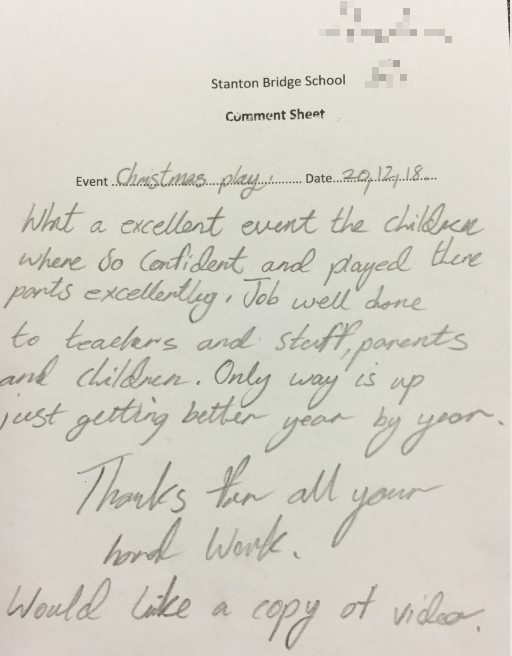 Stanton Bridge School
Comment Sheet
Event Christmas play. Date 20,12,18
What a excellent event the children
where so confident and played there
parts excellently. Job well done
to teachers and staff, parents
and children. Only way is up
just getting better year by year.
Thanks for all your
hard work.
Would like a copy of video.